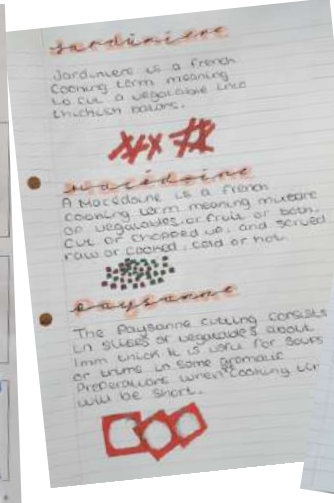 Jardiniere
Jardiniere is a french
cooking term meaning
to cut a vegetable into
thickish batons.
Macédoine
A Macédoine is a french
cooking term meaning mixture
of vegetables or fruit or both,
cut or chopped up, and served
raw or cooked, cold or hot.
paysanne
The Paysanne cutting consists
in slices of vegetables about
1mm thick It is useful for soups
or trims in some aromatic
Preparations when cooking
will be short.